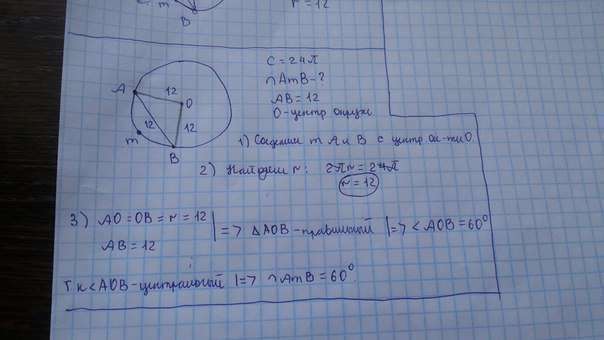 m
B
r = 12
C = 24π
∩AmB - ?
AB = 12
O - центр окружн
A
12
O
12
12
m
B
1) Соединим т A и B с центр ок-ти O.
2) Найдем r: 2πr = 24π
r = 12
3) AO = OB = r = 12
AB = 12
| => ΔAOB - правильный |=> <AOB = 60°
Т к <AOB - центральный |=> ∩AmB = 60°